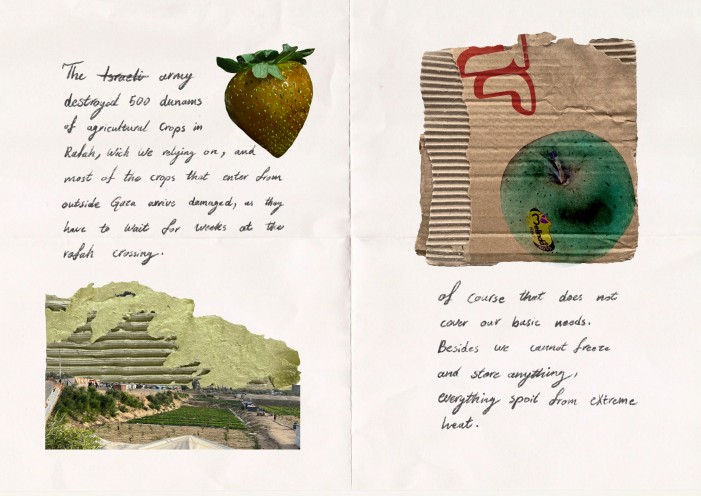 The Israeli army
destroyed 500 dunams
of agricultural crops in
Rafah, wich we relying on, and
most of the crops that enter from
outside Gaza arrive damaged, as they
have to wait for weeks at the
rafah crossing.
of course that does not
cover our basic needs.
Besides we cannot freeze
and store anything,
everything spoil from extreme
heat.